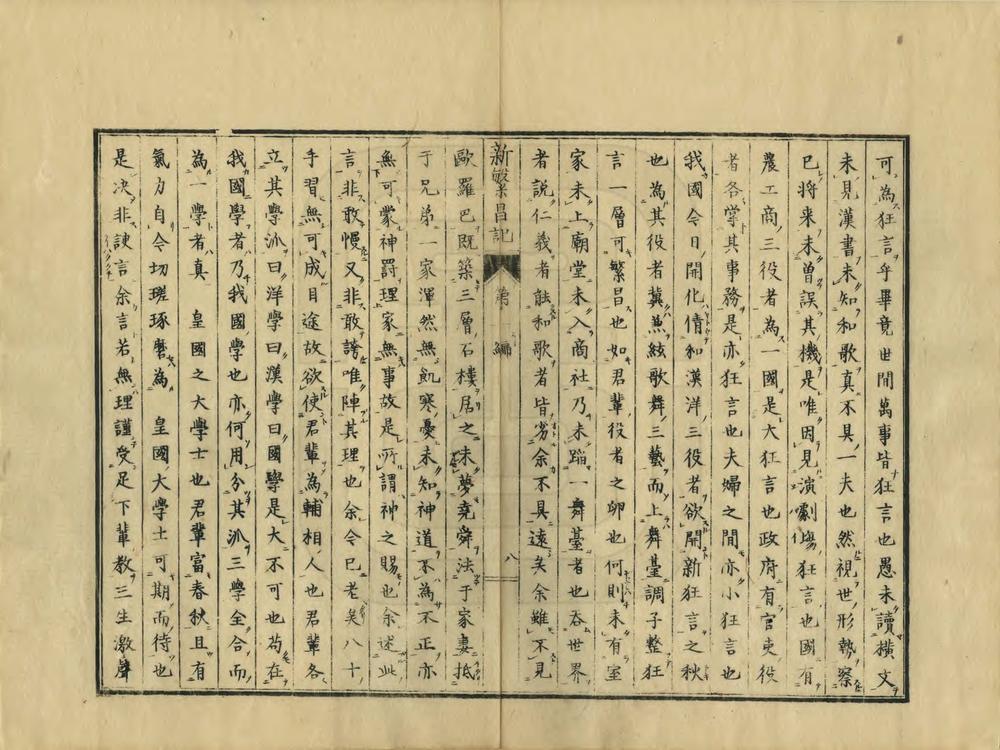 可為狂言乎畢竟世間萬事皆狂言也愚未讀横文
未見漢書未知和歌真不具一夫也然視世形勢察
已將来未曽誤其機是唯因見演劇場狂言也國有
農工商三役者為一國是大狂言也政府有官吏役
者各掌其事務是亦狂言也夫婦之間亦小狂言也
我國今日開化倩和漢洋三役者欲開新狂言之秋
也為其役者冀兼絃歌舞三藝而上舞臺調子整狂
言一層可繁昌也如君輩役者之卵也何則未有室
家未上廟堂未入商社乃未蹈一舞臺者也吞世界
者説仁義者能和歌者皆劣余不具遠矣余雖不見
新繁昌記 第一編 八
歐羅巴既築三層石樓居之未夢堯舜法于家妻抵
于兄弟一家渾然無飢寒憂未知神道不為不正亦
無可蒙神罰理家無事故是所謂神之賜也余述此
言非敢慢又非敢誇唯陣其理也余今已老矣八十
手習無可成目途故欲使君輩為輔相人也君輩各
立其學派曰洋學曰漢學曰國學是大不可也苟在
我國學者乃我國學也亦何用分其派三學全合而
為一學者真 皇國之大學士也君輩富春秋且有
氣力自今切瑳琢磨為 皇國大學士可期而待也
是决非諛言余言若無理謹受足下輩教三生激聲